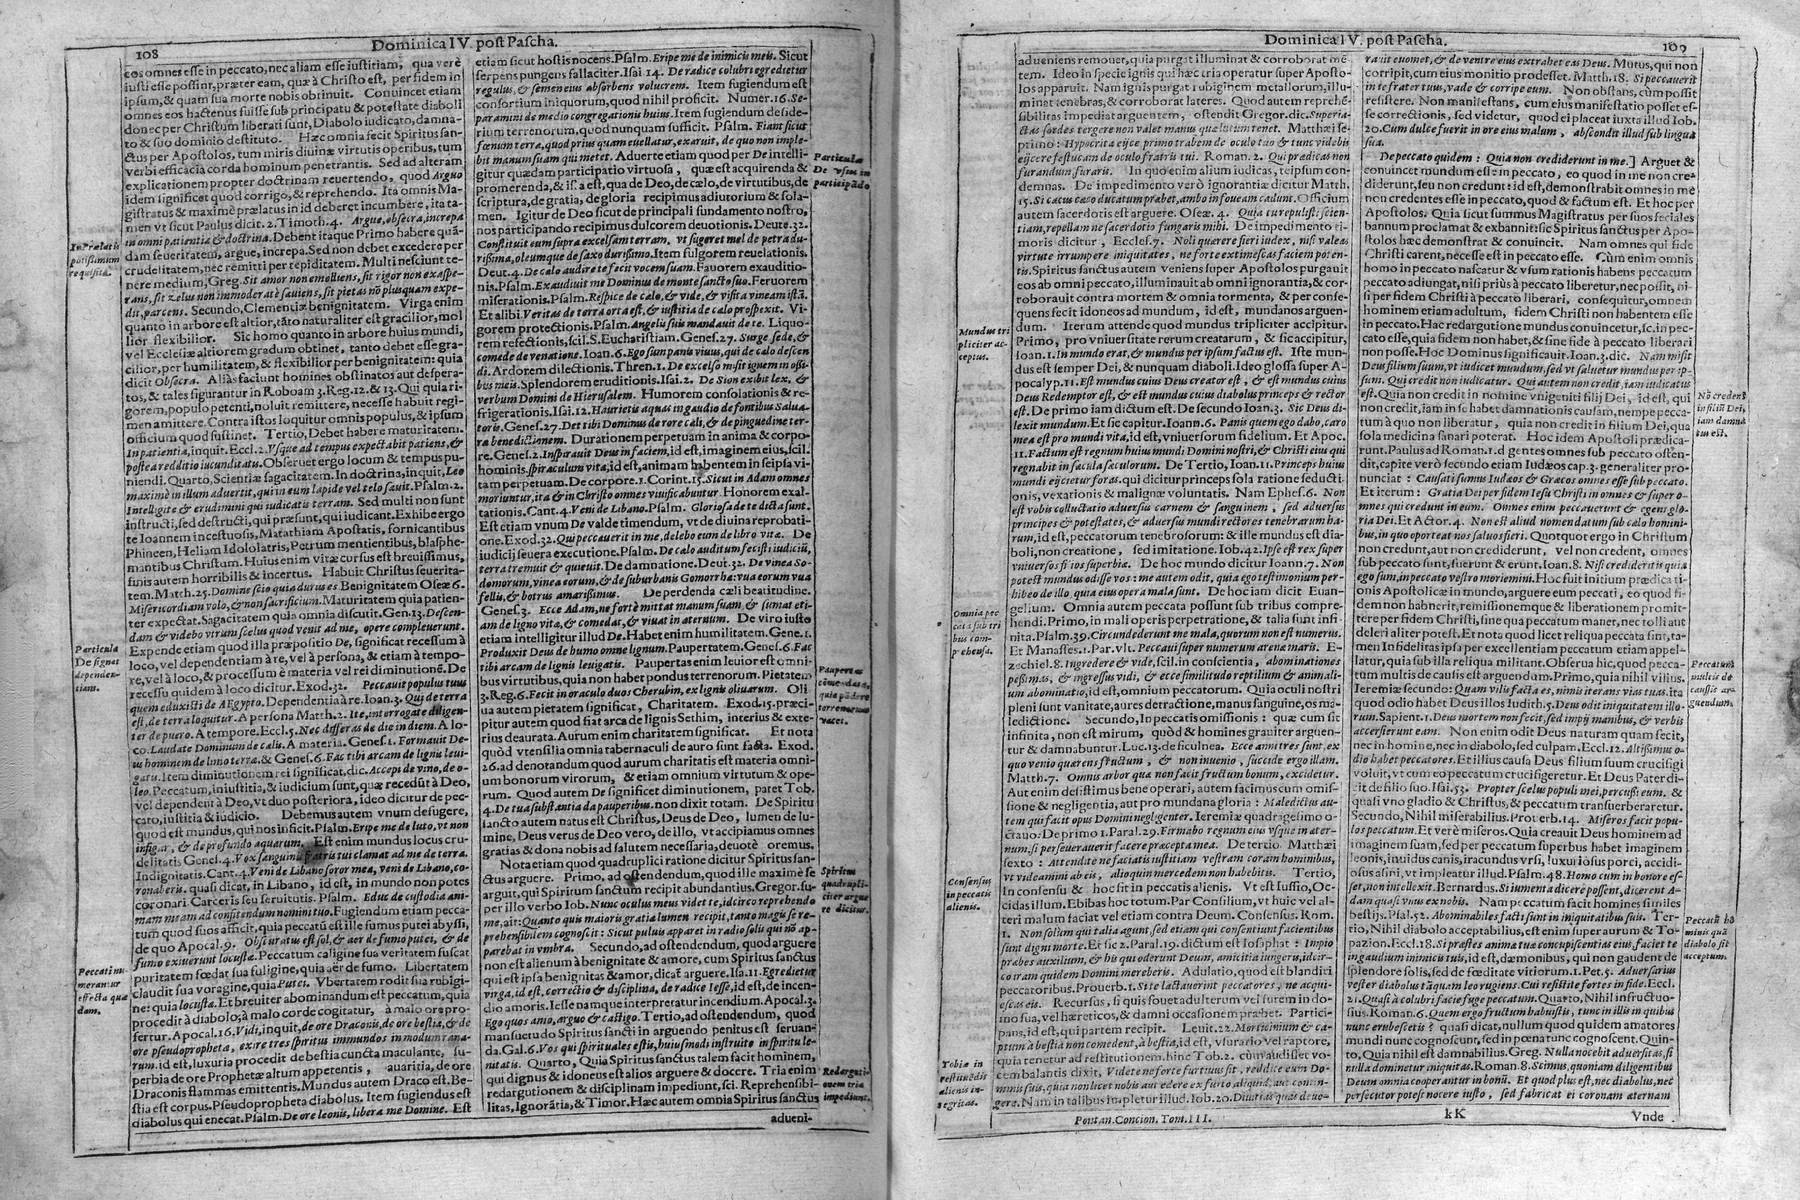 108
Dominica IV. post Pascha.
eos omnes esse in peccato, nec aliam esse iustitiam, qua verè
iusti esse possint, præter eam, quæ à Christo est, per fidem in
ipsum, & quam sua morte nobis obtinuit. Conuincet etiam
omnes eos hactenus fuisse sub principatu & potestate diaboli
donec per Christum liberati sunt, Diabolo iudicato, damna-
to & suo dominio destituto. Hæc omnia fecit Spiritus san-
ctus per Apostolos, tum miris diuinæ virtutis operibus, tum
verbi efficacia corda hominum penetrantis. Sed ad alteram
explicationem propter doctrinam reuertendo, quod Arguo
idem significet quod corrigo, & reprehendo. Ita omnis Ma-
gistratus & maximè prælatus in id deberet incumbere, ita ta-
men vt sicut Paulus dicit. 2. Timoth. 4. Argue, obsecra, increpa
in omni patientia & doctrina. Debent itaque Primo habere quã-
dam seueritatem, argue, increpa. Sed non debet excedere per
crudelitatem, nec remitti per tepiditatem. Multi nesciunt te-
nere medium, Greg. Sit amor non emolliens, sit rigor non exaspe-
rans, sit zelus non immoderatè sæuiens, sit pietas nõ plusquam expe-
dit, parcens. Secundo, Clementiæ benignitatem. Virga enim
quanto in arbore est altior, tãto naturaliter est gracilior, mol
lior flexibilior. Sic homo quanto in arbore huius mundi,
vel Ecclesiæ altiorem gradum obtinet, tanto debet esse gra-
cilior, per humilitatem, & flexibilior per benignitatem: quia
dicit Obsecra. Aliàs faciunt homines obstinatos aut despera-
tos, & tales figurantur in Roboam 3. Reg. 12. & 13. Qui quia ri-
gorem, populo petenti, noluit remittere, necesse habuit regi-
men amittere. Contra istos loquitur omnis populus, & ipsum
officium quod sustinet. Tertio, Debet habere maturitatem.
In patientia, inquit. Eccl. 2. Vsque ad tempus expectabit patiens, &
postea redditio iucunditatis. Obseruet ergo locum & tempus pu-
niendi. Quarto, Scientiæ sagacitatem. In doctrina, inquit, Leo
maximè in illum aduertit, qui in eum lapide vel telo sauit. Psalm. 2.
Intelligite & erudimini qui iudicatis terram. Sed multi non sunt
instructi, sed destructi, qui præsunt, qui iudicant. Exhibe ergo
te Ioannem incestuosis, Matathiam Apostatis, fornicantibus
Phineen, Heliam Idololatris, Petrum mentientibus, blasphe-
mantibus Christum. Huius enim vitæ cursus est breuissimus,
finis autem horribilis & incertus. Habuit Christus seuerita-
tem. Matth. 25. Domine scio quia durus es Benignitatem Oseæ 6.
Misericordiam volo, & non sacrificium. Maturitatem quia patien-
ter expectat. Sagacitatem quia omnia discutit. Gen. 13. Descen-
dam & videbo vtrum scelus quod venit ad me, opere compleuerunt.
Expende etiam quod illa præpositio De, significat recessum à
loco, vel dependentiam à re, vel à persona, & etiam à tempo-
re, vel à loco, & processum è materia vel rei diminutionẽ. De
recessu quidem à loco dicitur. Exod. 32. Peccauit populus tuus
quem eduxisti de AEgypto. Dependentia à re. Ioan. 3. Qui de terra
est, de terra loquitur. A persona Matth. 2. Ite, interrogate diligen-
ter de puero. A tempore. Eccl. 5. Nec differas de die in diem. A lo-
co. Laudate Dominum de cælis. A materia. Genes. 1. Formauit De-
us hominem de limo terræ. & Genes. 6. Fac tibi arcam de lignis leui-
gatis. Item diminutionem rei significat, dic. Accepi de vino, de o-
leo. Peccatum, iniustitia, & iudicium sunt, quæ recedũt à Deo,
vel dependent à Deo, vt duo posteriora, ideo dicitur de pec-
cato, iustitia & iudicio. Debemus autem vnum defugere,
quod est mundus, qui nos inficit. Psalm. Eripe me de luto, vt non
infigar, & de profundo aquarum. Est enim mundus locus cru-
delitatis Genes. 4. Vox sanguinis fratris tui clamat ad me de terra.
Indignitatis. Cant. 4. Veni de Libano soror mea, veni de Libano, co-
ronaberis. quasi dicat, in Libano, id est, in mundo non potes
coronari Carceris seu seruitutis. Psalm. Educ de custodia ani-
mam meam ad confitendum nomini tuo. Fugiendum etiam pecca-
tum quod suos afficit, quia peccatũ est ille fumus putei abyssi,
de quo Apocal. 9. Obscuratus est sol, & aer de fumo putei, & de
fumo exiuerunt locustæ. Peccatum caligine sua veritatem fuscat
puritatem fœdat sua fuligine, quia aër de fumo. Libertatem
claudit sua voragine, quia Putei. Vbertatem rodit sua rubigi-
ne: quia locustæ. Et breuiter abominandum est peccatum, quia
procedit à diabolo, à malo corde cogitatur, à malo ore pro-
fertur. Apocal. 16. Vidi, inquit, de ore Draconis, de ore bestiæ, & de
ore pseudoprophetæ, exire tres spiritus immundos in modum rana-
rum. id est, luxuria procedit de bestia cuncta maculante, su-
perbia de ore Prophetæ altum appetentis, auaritia, de ore
Draconis flammas emittentis. Mundus autem Draco est. Be-
stia est corpus. Pseudopropheta diabolus. Item fugiendus est
diabolus qui enecat. Psalm. De ore leonis, libera me Domine. Est
In Prælatis
potissimum
requisita.
Particula
De signat
dependen-
tiam.
Peccati nu-
merantur
effecta quæ-
dam.
etiam sicut hostis nocens. Psalm. Eripe me de inimicis meis. Sicut
serpens pungens fallaciter. Isai 14. De radice colubri egredietur
regulus, & semen eius absorbens volucrem. Item fugiendum est
consortium iniquorum, quod nihil proficit. Numer. 16. Se-
paramini de medio congregationis huius. Item fugiendum deside-
rium terrenorum, quod nunquam sufficit. Psalm. Fiant sicut
fœnum terræ, quod prius quam euellatur, exaruit, de quo non imple-
bit manum suam qui metet. Aduerte etiam quod per De intelli-
gitur quædam participatio virtuosa, quæ est acquirenda &
promerenda, & is. a est, qua de Deo, de cælo, de virtutibus, de
scriptura, de gratia, de gloria recipimus adiutorium & sola-
men. Igitur de Deo sicut de principali fundamento nostro,
nos participando recipimus dulcorem deuotionis. Deut. 32.
Constituit eum supra excelsam terram, vt sugeret mel de petra du-
rissima, oleumque de saxo durissimo. Item fulgorem reuelationis.
Deut. 4. De cælo audire te fecit vocem suam. Fauorem exauditio-
nis. Psalm. Exaudiuit me Dominus de monte sancto suo. Feruorem
miserationis. Psalm. Respice de cælo, & vide, & visita vineam istã.
Et alibi. Veritas de terra orta est, & iustitia de cælo prospexit. Vi-
gorem protectionis. Psalm. Angelis suis mandauit de te. Liquo-
rem refectionis, scil. S. Eucharistiam. Genes. 27. Surge sede, &
comede de venatione. Ioan. 6. Ego sum panis viuus, qui de cælo descen
di. Ardorem dilectionis. Thren. 1. De excelso misit ignem in ossi-
bus meis. Splendorem eruditionis. Isai. 2. De Sion exibit lex, &
verbum Domini de Hierusalem. Humorem consolationis & re-
frigerationis. Isai. 12. Haurietis aquas in gaudio de fontibus Salua-
toris. Genes. 27. Det tibi Dominus de rore cæli, & de pinguedine ter-
ræ benedictionem. Durationem perpetuam in anima & corpo-
re. Genes. 2. Inspirauit Deus in faciem, id est, imaginem eius, scil.
hominis, spiraculum vitæ, id est, animam habentem in seipsa vi-
tam perpetuam. De corpore. 1. Corint. 15. Sicut in Adam omnes
moriuntur, ita & in Christo omnes viuificabuntur. Honorem exal-
tationis. Cant. 4. Veni de Libano. Psalm. Gloriosa de te dicta sunt.
Est etiam vnum De valde timendum, vt de diuina reprobati-
one. Exod. 32. Qui peccauerit in me, delebo eum de libro vitæ. De
iudicij seuera executione. Psalm. De cælo auditum fecisti iudiciũ,
terra tremuit & quieuit. De damnatione. Deut. 32. De vinea So-
domorum, vinea eorum, & de suburbanis Gomorrhæ: vua eorum vua
fellis, & botrus amarissimus. De perdenda cæli beatitudine.
Genes. 3. Ecce Adam, ne fortè mittat manum suam, & sumat eti-
am de ligno vitæ, & comedat, & viuat in æternum. De viro iusto
etiam intelligitur illud De. Habet enim humilitatem. Gene. 1.
Produxit Deus de humo omne lignum. Paupertatem. Genes. 6. Fac
tibi arcam de lignis leuigatis. Paupertas enim leuior est omni-
bus virtutibus, quia non habet pondus terrenorum. Pietatem
3. Reg. 6. Fecit in oraculo duos Cherubin, ex lignis oliuarum. Oli
ua autem pietatem significat, Charitatem. Exod. 15. præci-
pitur autem quod fiat arca de lignis Sethim, interius & exte-
rius deaurata. Aurum enim charitatem significat. Et nota
quòd vtensilia omnia tabernaculi de auro sunt facta. Exod.
26. ad denotandum quod aurum charitatis est materia omni-
um bonorum virorum, & etiam omnium virtutum & ope-
rum. Quod autem De significet diminutionem, patet Tob.
4. De tua substantia da pauperibus. non dixit totam. De Spiritu
sancto autem natus est Christus, Deus de Deo, lumen de lu-
mine, Deus verus de Deo vero, de illo, vt accipiamus omnes
gratias & dona nobis ad salutem necessaria, deuotè oremus.
Nota etiam quod quadruplici ratione dicitur Spiritus san-
ctus arguere. Primo, ad ostendendum, quod ille maximè se
arguit, qui Spiritum sanctum recipit abundantius. Gregor. su-
per illo verbo Iob. Nunc oculus meus videt te, idcirco reprehendo
me, ait: Quanto quis maioris gratiæ lumen recipit, tanto magis se re-
prehensibilem cognoscit: Sicut puluis apparet in radio solis qui nõ ap-
parebat in vmbra. Secundo, ad ostendendum, quod arguere
non est alienum à benignitate & amore, cum Spiritus sanctus
qui est ipsa benignitas & amor, dicat̃ arguere. Isa. 11. Egredietur
virga, id est, correctio & disciplina, de radice Iesse, id est, de incen-
dio amoris. Iesse namque interpretatur incendium. Apocal. 3.
Ego quos amo, arguo & castigo. Tertio, ad ostendendum, quod
mansuetudo Spiritus sancti in arguendo penitus est seruan-
da. Gal. 6. Vos qui spirituales estis, huiusmodi instruite in spiritu le-
nitatis. Quarto, Quia Spiritus sanctus talem facit hominem,
qui dignus & idoneus est alios arguere & docere. Tria enim
redargutionem & disciplinam impediunt, sci. Reprehensibi-
litas, Ignorãtia, & Timor. Hæc autem omnia Spiritus sanctus
adueni-
Particula
De vsus in
participãdo
Paupertas
cõmendata,
quia põdere
terrenorum
vacet.
Spiritus
quadrupli-
citer argue
re dicitur.
Redarguti-
onem tria
impediunt.
Dominica IV. post Pascha.
109
adueniens remouet, quia purgat illuminat & corroborat mẽ
tem. Ideo in specie ignis qui hæc tria operatur super Aposto-
los apparuit. Nam ignis purgat rubiginem metallorum, illu-
minat tenebras, & corroborat lateres. Quod autem reprehẽ-
sibilitas impediat arguentem, ostendit Gregor. dic. Superia-
ctas sordes tergere non valet manus quæ lutum tenet. Matthæi se-
ptimo: Hypocrita eijce primo trabem de oculo tuo & tunc videbis
eijcere festucam de oculo fratris tui. Roman. 2. Qui prædicas non
furandum, furaris. In quo enim alium iudicas, teipsum con-
demnas. De impedimento verò ignorantiæ dicitur Matth.
15. Si cæcus cæco ducatum præbet, ambo in foueam cadunt. Officium
autem sacerdotis est arguere. Oseæ. 4. Quia tu repulisti scien-
tiam, repellam ne sacerdotio fungaris mihi. De impedimento ti-
moris dicitur, Ecclef. 7. Noli quærere fieri iudex, nisi valeas
virtute irrumpere iniquitates, ne forte extimescas faciem poten-
tis. Spiritus sanctus autem veniens super Apostolos purgauit
eos ab omni peccato, illuminauit ab omni ignorantia, & cor-
roborauit contra mortem & omnia tormenta, & per conse-
quens fecit idoneos ad mundum, id est, mundanos arguen-
dum. Iterum attende quod mundus tripliciter accipitur.
Primo, pro vniuersitate rerum creatarum, & sic accipitur,
Ioan. 1. In mundo erat, & mundus per ipsum factus est. Iste mun-
dus est semper Dei, & nunquam diaboli. Ideo glossa super A-
pocalyp. 11. Est mundus cuius Deus creator est, & est mundus cuius
Deus Redemptor est, & est mundus cuius diabolus princeps & rector
est. De primo iam dictum est. De secundo Ioan. 3. Sic Deus di-
lexit mundum. Et sic capitur. Ioann. 6. Panis quem ego dabo, caro
mea est pro mundi vita, id est, vniuersorum fidelium. Et Apoc.
11. Factum est regnum huius mundi Domini nostri, & Christi eius qui
regnabit in sæcula sæculorum. De Tertio, Ioan. 11. Princeps huius
mundi eijcietur foras. qui dicitur princeps sola ratione seducti
onis, vexationis & malignæ voluntatis. Nam Ephes. 6. Non
est vobis colluctatio aduersus carnem & sanguinem, sed aduersus
principes & potestates, & aduersus mundi rectores tenebrarum ha-
rum, id est, peccatorum tenebrosorum: & ille mundus est dia-
boli, non creatione, sed imitatione. Iob. 42. Ipse est rex super
vniuersos filios superbiæ. De hoc mundo dicitur Ioann. 7. Non
potest mundus odisse vos: me autem odit, quia ego testimonium per-
hibeo de illo, quia eius opera mala sunt. De hoc iam dicit Euan-
gelium. Omnia autem peccata possunt sub tribus compre-
hendi. Primo, in mali operis perpetratione, & talia sunt infi-
nita. Psalm. 39. Circundederunt me mala, quorum non est numerus.
Et Manasses. 1. Par. vlt. Peccaui super numerum arenæ maris. E-
zechiel. 8. Ingredere & vide, scil. in conscientia, abominationes
pessimas, & ingressus vidi, & ecce similitudo reptilium & animali-
um abominatio, id est, omnium peccatorum. Quia oculi nostri
pleni sunt vanitate, aures detractione, manus sanguine, os ma-
ledictione. Secundo, In peccatis omissionis: quæ cum sit
infinita, non est mirum, quòd & homines grauiter arguen-
tur & damnabuntur. Luc. 13. de ficulnea. Ecce anni tres sunt, ex
quo venio quærens fructum, & non inuenio, succide ergo illam.
Matth. 7. Omnis arbor quæ non facit fructum bonum, excidetur.
Aut enim desistimus bene operari, autem facimus cum omis-
sione & negligentia, aut pro mundana gloria: Maledictus au-
tem qui facit opus Domini negligenter. Ieremiæ quadragesimo o-
ctauo: De primo 1. Paral. 29. Firmabo regnum eius vsque in æter-
num, si perseuerauerit facere præcepta mea. De tertio Matthæi
sexto: Attendite ne faciatis iustitiam vestram coram hominibus,
vt videamini ab eis, alioquin mercedem non habebitis. Tertio,
In consensu & hoc sit in peccatis alienis. Vt est Iussio, Oc-
cidas illum. Ebibas hoc totum. Par Consilium, vt huic vel al-
teri malum faciat vel etiam contra Deum. Consensus. Rom.
1. Non solùm qui talia agunt, sed etiam qui consentiunt facientibus
sunt digni morte. Et sic 2. Paral. 19. dictum est Iosaphat: Impio
præbes auxilium, & his qui oderunt Deum, amicitia iungeris, idcir-
co iram quidem Domini merebaris. Adulatio, quod est blandiri
peccatoribus. Prouerb. 1. Si te lactauerint peccatores, ne acqui-
escas eis. Recursus, si quis fouet adulterum vel furem in do-
mo sua, vel hæreticos, & damni occasionem præbet. Partici-
pans, id est, qui partem recipit. Leuit. 22. Morticinium & ca-
ptum à bestia non comedent, à bestia, id est, vsurario vel raptore,
quia tenetur ad restitutionem. hinc Tob. 2. cùm audisset vo-
cem balantis dixit, Videte ne forte furtiuus sit, reddite eum Do-
minis suis, quia non licet nobis aut edere ex furto aliquid, aut contin-
gere. Nam in talibus impletur illud. Iob. 20. Diuitias quas deuo-
Mundus tri
pliciter ac-
ceptus.
Omnia pec
cata sub tri
bus com-
prehensa.
Consensus
in peccatis
alienis.
Tobiæ in
restituẽdis
alienis in-
tegritas.
Pontan. Concion. Tom. III.
rauit euomet, & de ventre eius extrahet eas Deus. Mutus, qui non
corripit, cum eius monitio prodesset. Matth. 18. Si peccauerit
in te frater tuus, vade & corripe eum. Non obstans, cùm possit
resistere. Non manifestans, cum eius manifestatio potest es-
se correctionis, sed videtur, quod ei placeat iuxta illud Iob.
20. Cum dulce fuerit in ore eius malum, abscondit illud sub lingua
sua.
De peccato quidem: Quia non crediderunt in me.] Arguet &
conuincet mundum esse in peccato, eo quod in me non cre-
diderunt, seu non credunt: id est, demonstrabit omnes in me
non credentes esse in peccato, quod & factum est. Et hoc per
Apostolos. Quia sicut summus Magistratus per suos feciales
bannum proclamat & exbannit: sic Spiritus sanctus per Apo-
stolos hæc demonstrat & conuincit. Nam omnes qui fide
Christi carent, necesse est in peccato esse. Cùm enim omnis
homo in peccato nascatur & vsum rationis habens peccatum
peccato adiungat, nisi priùs à peccato liberetur, nec possit, ni-
si per fidem Christi à peccato liberari, consequitur, omnem
hominem etiam adultum, fidem Christi non habentem esse
in peccato. Hac redargutione mundus conuincetur, sc. in pec-
cato esse, quia fidem non habet, & sine fide à peccato liberari
non posse. Hoc Dominus significauit. Ioan. 3. dic. Nam misit
Deus filium suum, vt iudicet mundum, sed vt saluetur mundus per ip-
sum. Qui credit non iudicatur. Qui autem non credit, iam iudicatus
est. Quia non credit in nomine vnigeniti filij Dei, id est, qui
non credit, iam in se habet damnationis causam, nempe pecca-
tum à quo non liberatur, quia non credit in filium Dei, qua
sola medicina sanari poterat. Hoc idem Apostoli prædica-
runt. Paulus ad Roman. 1. d gentes omnes sub peccato osten-
dit, capite verò secundo etiam Iudæos cap. 3. generaliter pro-
nunciat: Causati sumus Iudæos & Græcos omnes esse sub peccato.
Et iterum: Gratia Dei per fidem Iesu Christi in omnes & super o-
mnes qui credunt in eum. Omnes enim peccauerunt & egens glo-
ria Dei. Et Actor. 4. Non est aliud nomen datum sub cælo homini-
bus, in quo oporteat nos saluos fieri. Quotquot ergo in Christum
non credunt, aut non crediderunt, vel non credent, omnes
sub peccato sunt, fuerunt & erunt. Ioan. 8. Nisi credideritis quia
ego sum, in peccato vestro moriemini. Hoc fuit initium prædicati-
onis Apostolicæ in mundo, arguere eum peccati, eo quod fi-
dem non habuerit, remissionemque & liberationem promit-
tere per fidem Christi, sine qua peccatum maner, nec tolli aut
deleri aliter potest. Et nota quod licet reliqua peccata sint, ta-
men Infidelitas ipsa per excellentiam peccatum etiam appel-
latur, quia sub illa reliqua militant. Obserua hic, quod pecca-
tum multis de causis est arguendum. Primo, quia nihil vilius.
Ieremiæ secundo: Quam vilis facta es, nimis iterans vias tuas. ita
quod odio habet Deus illos Iudith. 5. Deus odit iniquitatem illo-
rum. Sapient. 1. Deus mortem non fecit, sed impij manibus, & verbis
accersierunt eam. Non enim odit Deus naturam quam fecit,
nec in homine, nec in diabolo, sed culpam. Eccl. 12. Altissimus o-
dio habet peccatores. Et illius causa Deus filium suum crucifigi
voluit, vt cum eo peccatum crucifigeretur. Et Deus Pater di-
cit de filio suo. Isai. 53. Propter scelus populi mei, percussi eum. &
quasi vno gladio & Christus, & peccatum transuerberaretur.
Secundo, Nihil miserabilius. Prouerb. 14. Miseros facit popu-
los peccatum. Et verè miseros. Quia creauit Deus hominem ad
imaginem suam, sed per peccatum superbus habet imaginem
leonis, inuidus canis, iracundus vrsi, luxuriosus porci, accidi-
osus asini, vt impleatur illud. Psalm. 48. Homo cum in honore es-
set, non intellexit. Bernardus. Si iumenta dicere possent, dicerent A-
dam quasi vnus ex nobis. Nam peccatum facit homines similes
bestijs. Psal. 52. Abominabiles facti sunt in iniquitatibus suis. Ter-
tio, Nihil diabolo acceptabilius, est enim super aurum & To-
pazion. Eccl. 18. Si præstes animæ tuæ concupiscentias eius, faciet te
in gaudium inimicis tuis, id est, dæmonibus, qui non gaudent de
splendore solis, sed de fœditate vitiorum. 1. Pet. 5. Aduersarius
vester diabolus tãquam leo rugiens. Cui resistite fortes in fide. Eccl.
21. Quasi à colubri facie fuge peccatum. Quarto, Nihil infructuo-
sius. Roman. 6. Quem ergo fructum habuistis, tunc in illis in quibus
nunc erubescitis? quasi dicat, nullum quod quidem amatores
mundi nunc cognoscunt, sed in pœna tunc cognoscent. Quin-
to, Quia nihil est damnabilius. Greg. Nulla nocebit aduersitas, si
nulla dominetur iniquitas. Roman. 8. Scimus, quoniam diligentibus
Deum omnia cooperantur in bonũ. Et quod plus est, nec diabolus, nec
persecutor potest nocere iusto, sed fabricat ei coronam æternam
kK
Vnde
Nõ credens
in filiũ Dei,
iam damna
tus est.
Peccatum
multis de
caussis ar-
guendum.
Peccatũ ho
minis quã
diabolo sit
acceptum.